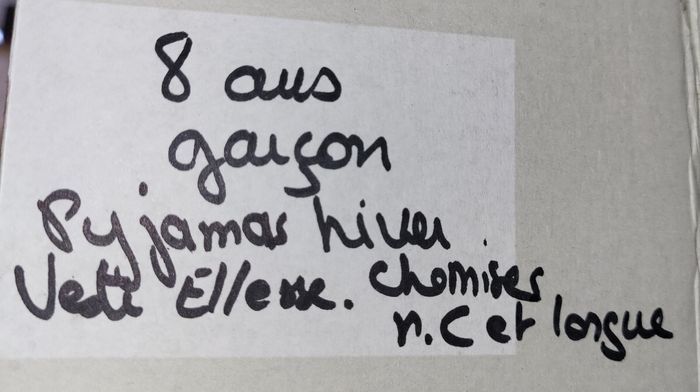 8 ans
garçon
Pyjamas hiver.
Veste Ellesse. Chemises
n.C et longue